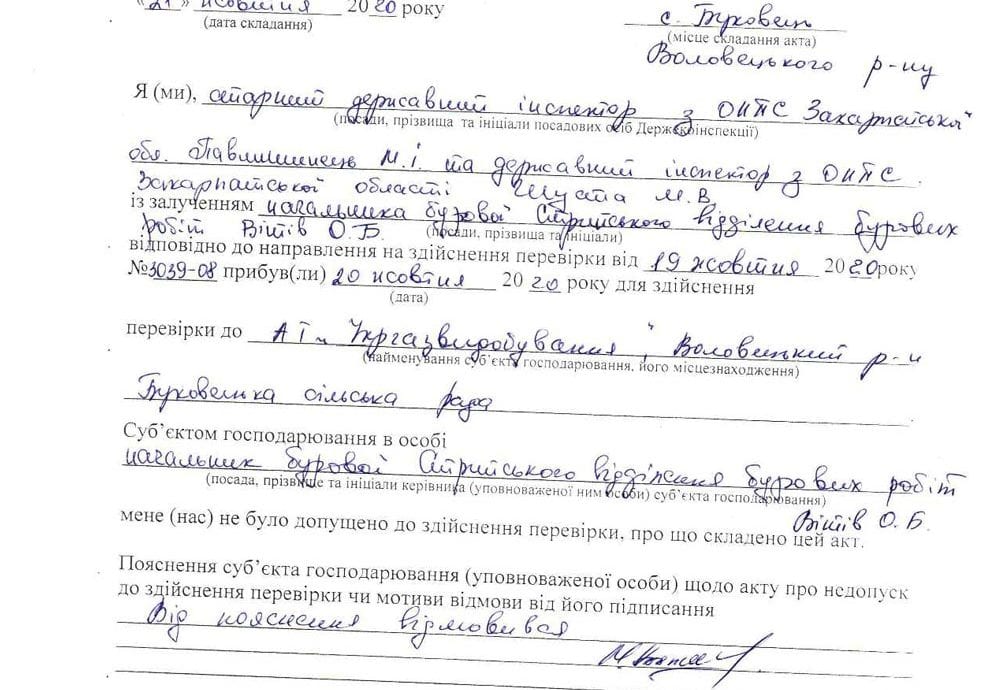 « 21 » жовтня 2020 року
(дата складання)
с. Буковець
(місце складання акта)
Воловецького р-ну
Я (ми), старший державний інспектор з ОНПС Закарпатської
(посади, прізвища та ініціали посадових осіб Держекоінспекції)
обл. Павлишинець М.І. та державний інспектор з ОНПС
Закарпатської області Шуста М.В.
із залученням начальника бурової Стрийського відділення бурових
робіт Вітів О.Б. (посади, прізвища та ініціали)
відповідно до направлення на здійснення перевірки від 19 жовтня 2020року
№3039-08 прибув(ли) 20 жовтня 2020 року для здійснення
(дата)
перевірки до АТ „Укргазвидобування", Воловецький р-н
(найменування суб’єкта господарювання, його місцезнаходження)
Буковецька сільська рада
Суб’єктом господарювання в особі
начальник бурової Стрийського відділення бурових робіт
(посада, прізвище та ініціали керівника (уповноваженої ним особи) суб’єкта господарювання)
Вітів О.Б.
мене (нас) не було допущено до здійснення перевірки, про що складено цей акт.
Пояснення суб’єкта господарювання (уповноваженої особи) щодо акту про недопуск
до здійснення перевірки чи мотиви відмови від його підписання
Від пояснення відмовився